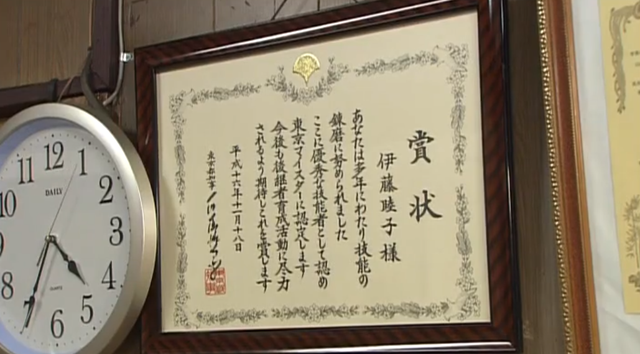 賞状
伊藤睦子様
あなたは多年にわたり技能の
錬磨に努められました
ここに優秀な技能者として認め
東京マイスターに認定します
今後も後継者育成活動に尽力
されるよう期待しこれを賞します
平成十六年十一月十八日
東京都知事
12
1
2
3
4
5
6
7
8
10
11
DAILY
QUARTZ